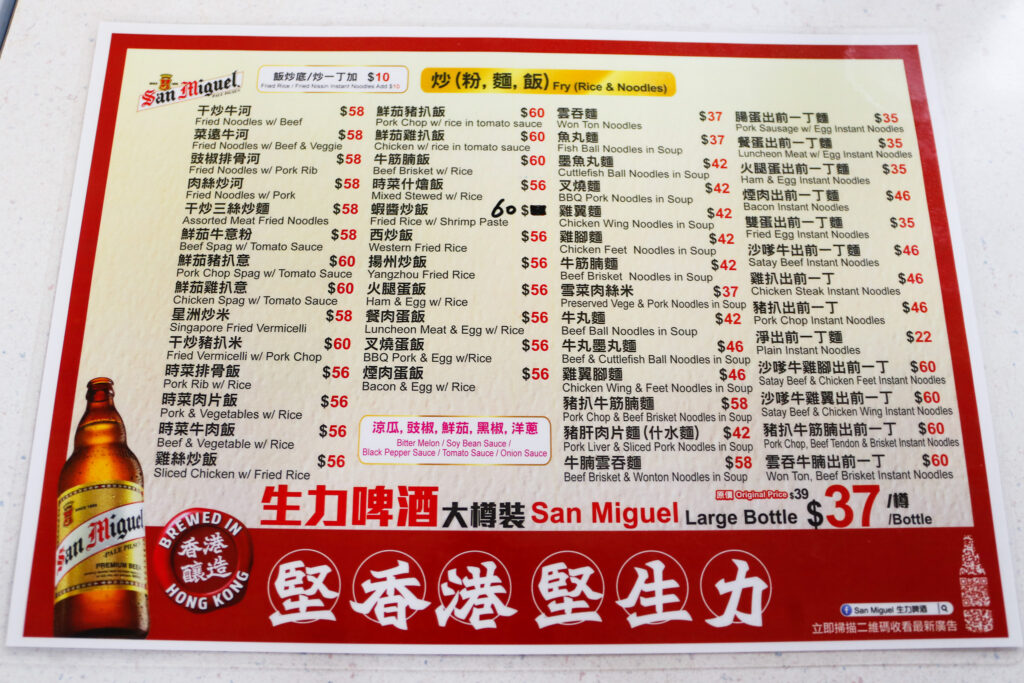 San Miguel
PALE PILSEN
飯炒底/炒一丁加 $10
Fried Rice / Fried Nissin Instant Noodles Add $10
炒(粉, 麵, 飯) Fry (Rice & Noodles)
干炒牛河 $58
Fried Noodles w/ Beef
菜遠牛河 $58
Fried Noodles w/ Beef & Veggie
豉椒排骨河 $58
Fried Noodles w/ Pork Rib
肉絲炒河 $58
Fried Noodles w/ Pork
干炒三絲炒麵 $58
Assorted Meat Fried Noodles
鮮茄牛意粉 $58
Beef Spag w/ Tomato Sauce
鮮茄豬扒意 $60
Pork Chop Spag w/ Tomato Sauce
鮮茄雞扒意 $60
Chicken Spag w/ Tomato Sauce
星洲炒米 $58
Singapore Fried Vermicelli
干炒豬扒米 $60
Fried Vermicelli w/ Pork Chop
時菜排骨飯 $56
Pork Rib w/ Rice
時菜肉片飯 $56
Pork & Vegetables w/ Rice
時菜牛肉飯 $56
Beef & Vegetable w/ Rice
雞絲炒飯 $56
Sliced Chicken w/ Fried Rice
鮮茄豬扒飯 $60
Pork Chop w/ rice in tomato sauce
鮮茄雞扒飯 $60
Chicken w/ rice in tomato sauce
牛筋腩飯 $60
Beef Brisket w/ Rice
時菜什燴飯 $56
Mixed Stewed w/ Rice
蝦醬炒飯 60 $
Fried Rice w/ Shrimp Paste
西炒飯 $56
Western Fried Rice
揚州炒飯 $56
Yangzhou Fried Rice
火腿蛋飯 $56
Ham & Egg w/ Rice
餐肉蛋飯 $56
Luncheon Meat & Egg w/Rice
叉燒蛋飯 $56
BBQ Pork & Egg w/Rice
煙肉蛋飯 $56
Bacon & Egg w/ Rice
涼瓜, 豉椒, 鮮茄, 黑椒, 洋蔥
Bitter Melon / Soy Bean Sauce /
Black Pepper Sauce / Tomato Sauce / Onion Sauce
雲吞麵 $37
Won Ton Noodles
魚丸麵 $37
Fish Ball Noodles in Soup
墨魚丸麵 $42
Cuttlefish Ball Noodles in Soup
叉燒麵 $42
BBQ Pork Noodles in Soup
雞翼麵 $42
Chicken Wing Noodles in Soup
雞腳麵 $42
Chicken Feet Noodles in Soup
牛筋腩麵 $42
Beef Brisket Noodles in Soup
雪菜肉絲米 $37
Preserved Vege & Pork Noodles in Soup
牛丸麵 $42
Beef Ball Noodles in Soup
牛丸墨丸麵 $46
Beef & Cuttlefish Ball Noodles in Soup
雞翼腳麵 $46
Chicken Wing & Feet Noodles in Soup
豬扒牛筋腩麵 $58
Pork Chop & Beef Brisket Noodles in Soup
豬肝肉片麵(什水麵) $42
Pork Liver & Sliced Pork Noodles in Soup
牛腩雲吞麵 $58
Beef Brisket & Wonton Noodles in Soup
腸蛋出前一丁麵 $35
Pork Sausage w/ Egg Instant Noodles
餐蛋出前一丁麵 $35
Luncheon Meat w/ Egg Instant Noodles
火腿蛋出前一丁麵 $35
Ham & Egg Instant Noodles
煙肉出前一丁麵 $46
Bacon Instant Noodles
雙蛋出前一丁麵 $35
Fried Egg Instant Noodles
沙嗲牛出前一丁麵 $46
Satay Beef Instant Noodles
雞扒出前一丁 $46
Chicken Steak Instant Noodles
豬扒出前一丁 $46
Pork Chop Instant Noodles
淨出前一丁麵 $22
Plain Instant Noodles
沙嗲牛雞腳出前一丁 $60
Satay Beef & Chicken Feet Instant Noodles
沙嗲牛雞翼出前一丁 $60
Satay Beef & Chicken Wing Instant Noodles
豬扒牛筋腩出前一丁 $60
Pork Chop, Beef Tendon & Brisket Instant Noodles
雲吞牛腩出前一丁 $60
Won Ton, Beef Brisket Instant Noodles
生力啤酒 大樽裝 San Miguel Large Bottle 原價 Original Price $39 $37 /樽 /Bottle
San Miguel
PALE PILSEN
PREMIUM BEER
BREWED IN
香港
釀造
HONG KONG
堅香港堅生力
San Miguel 生力啤酒
立即掃描二維碼收看最新廣告